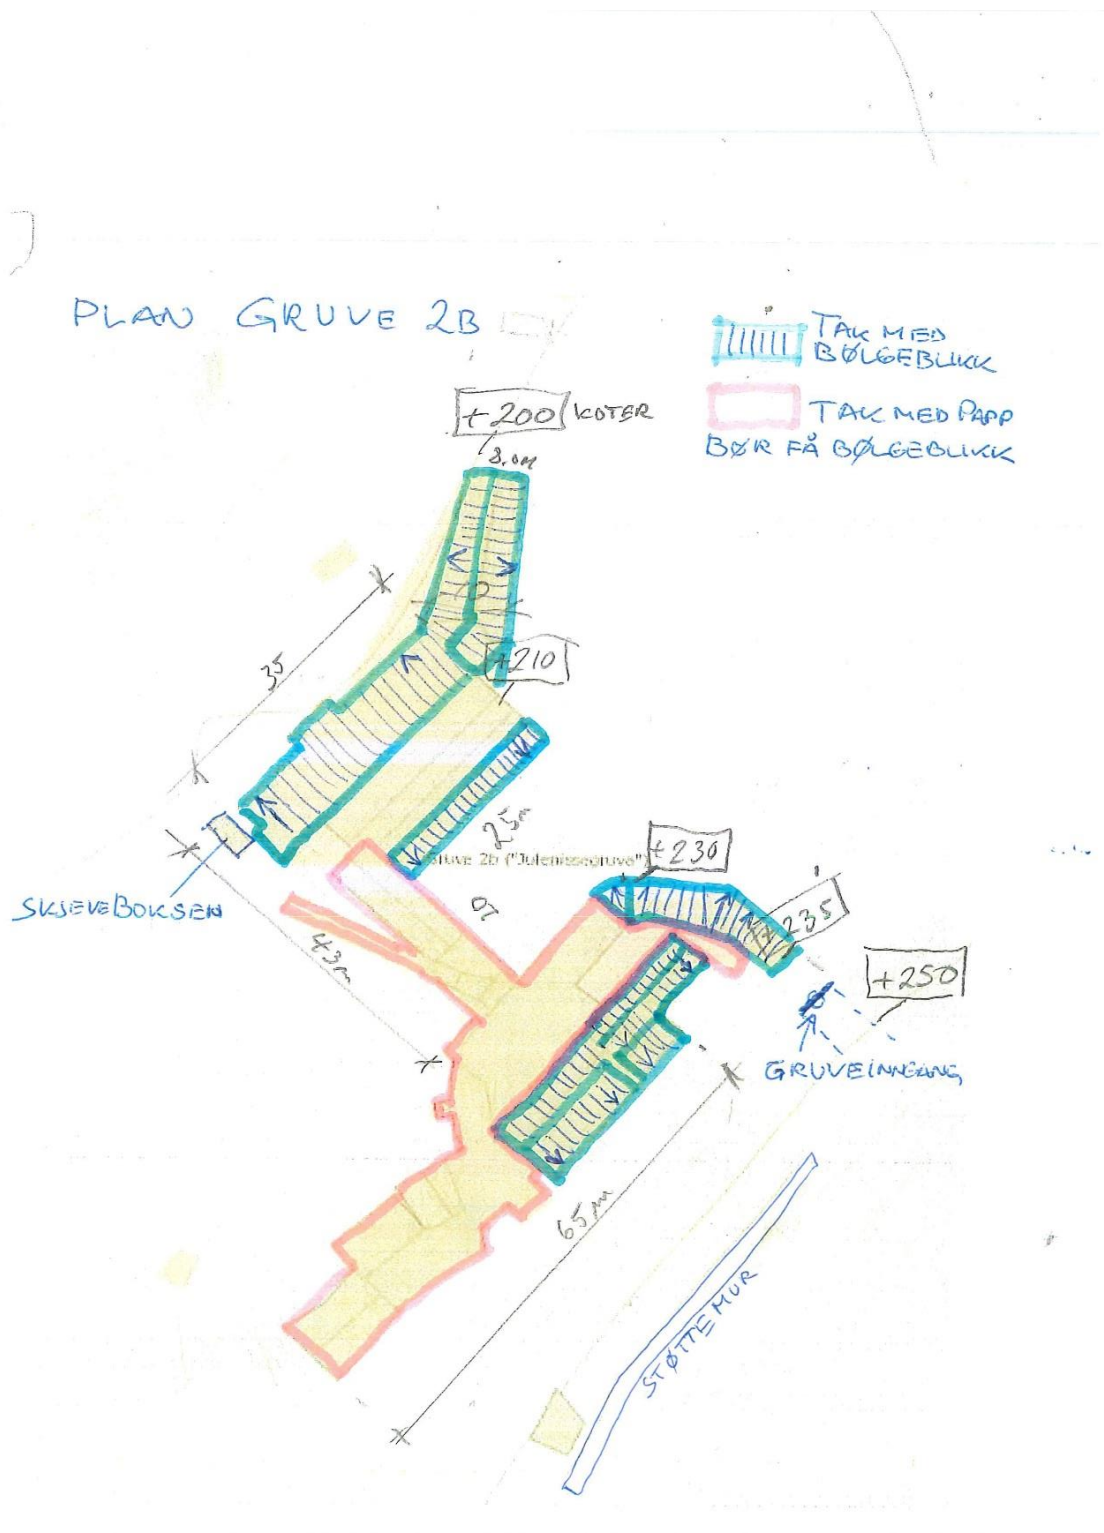 PLAN GRUVE 2B
TAK MED
BØLGEBLIKK
TAK MED PAPP
BØR FÅ BØLGEBLIKK
+200 KOTER
8.0M
10
+210
35
25m
Gruve 2b ("Julenissegruva")
+230
235
SKJEVEBOKSEN
43m
+250
GRUVEINNGANG
65m
STØTTEMUR